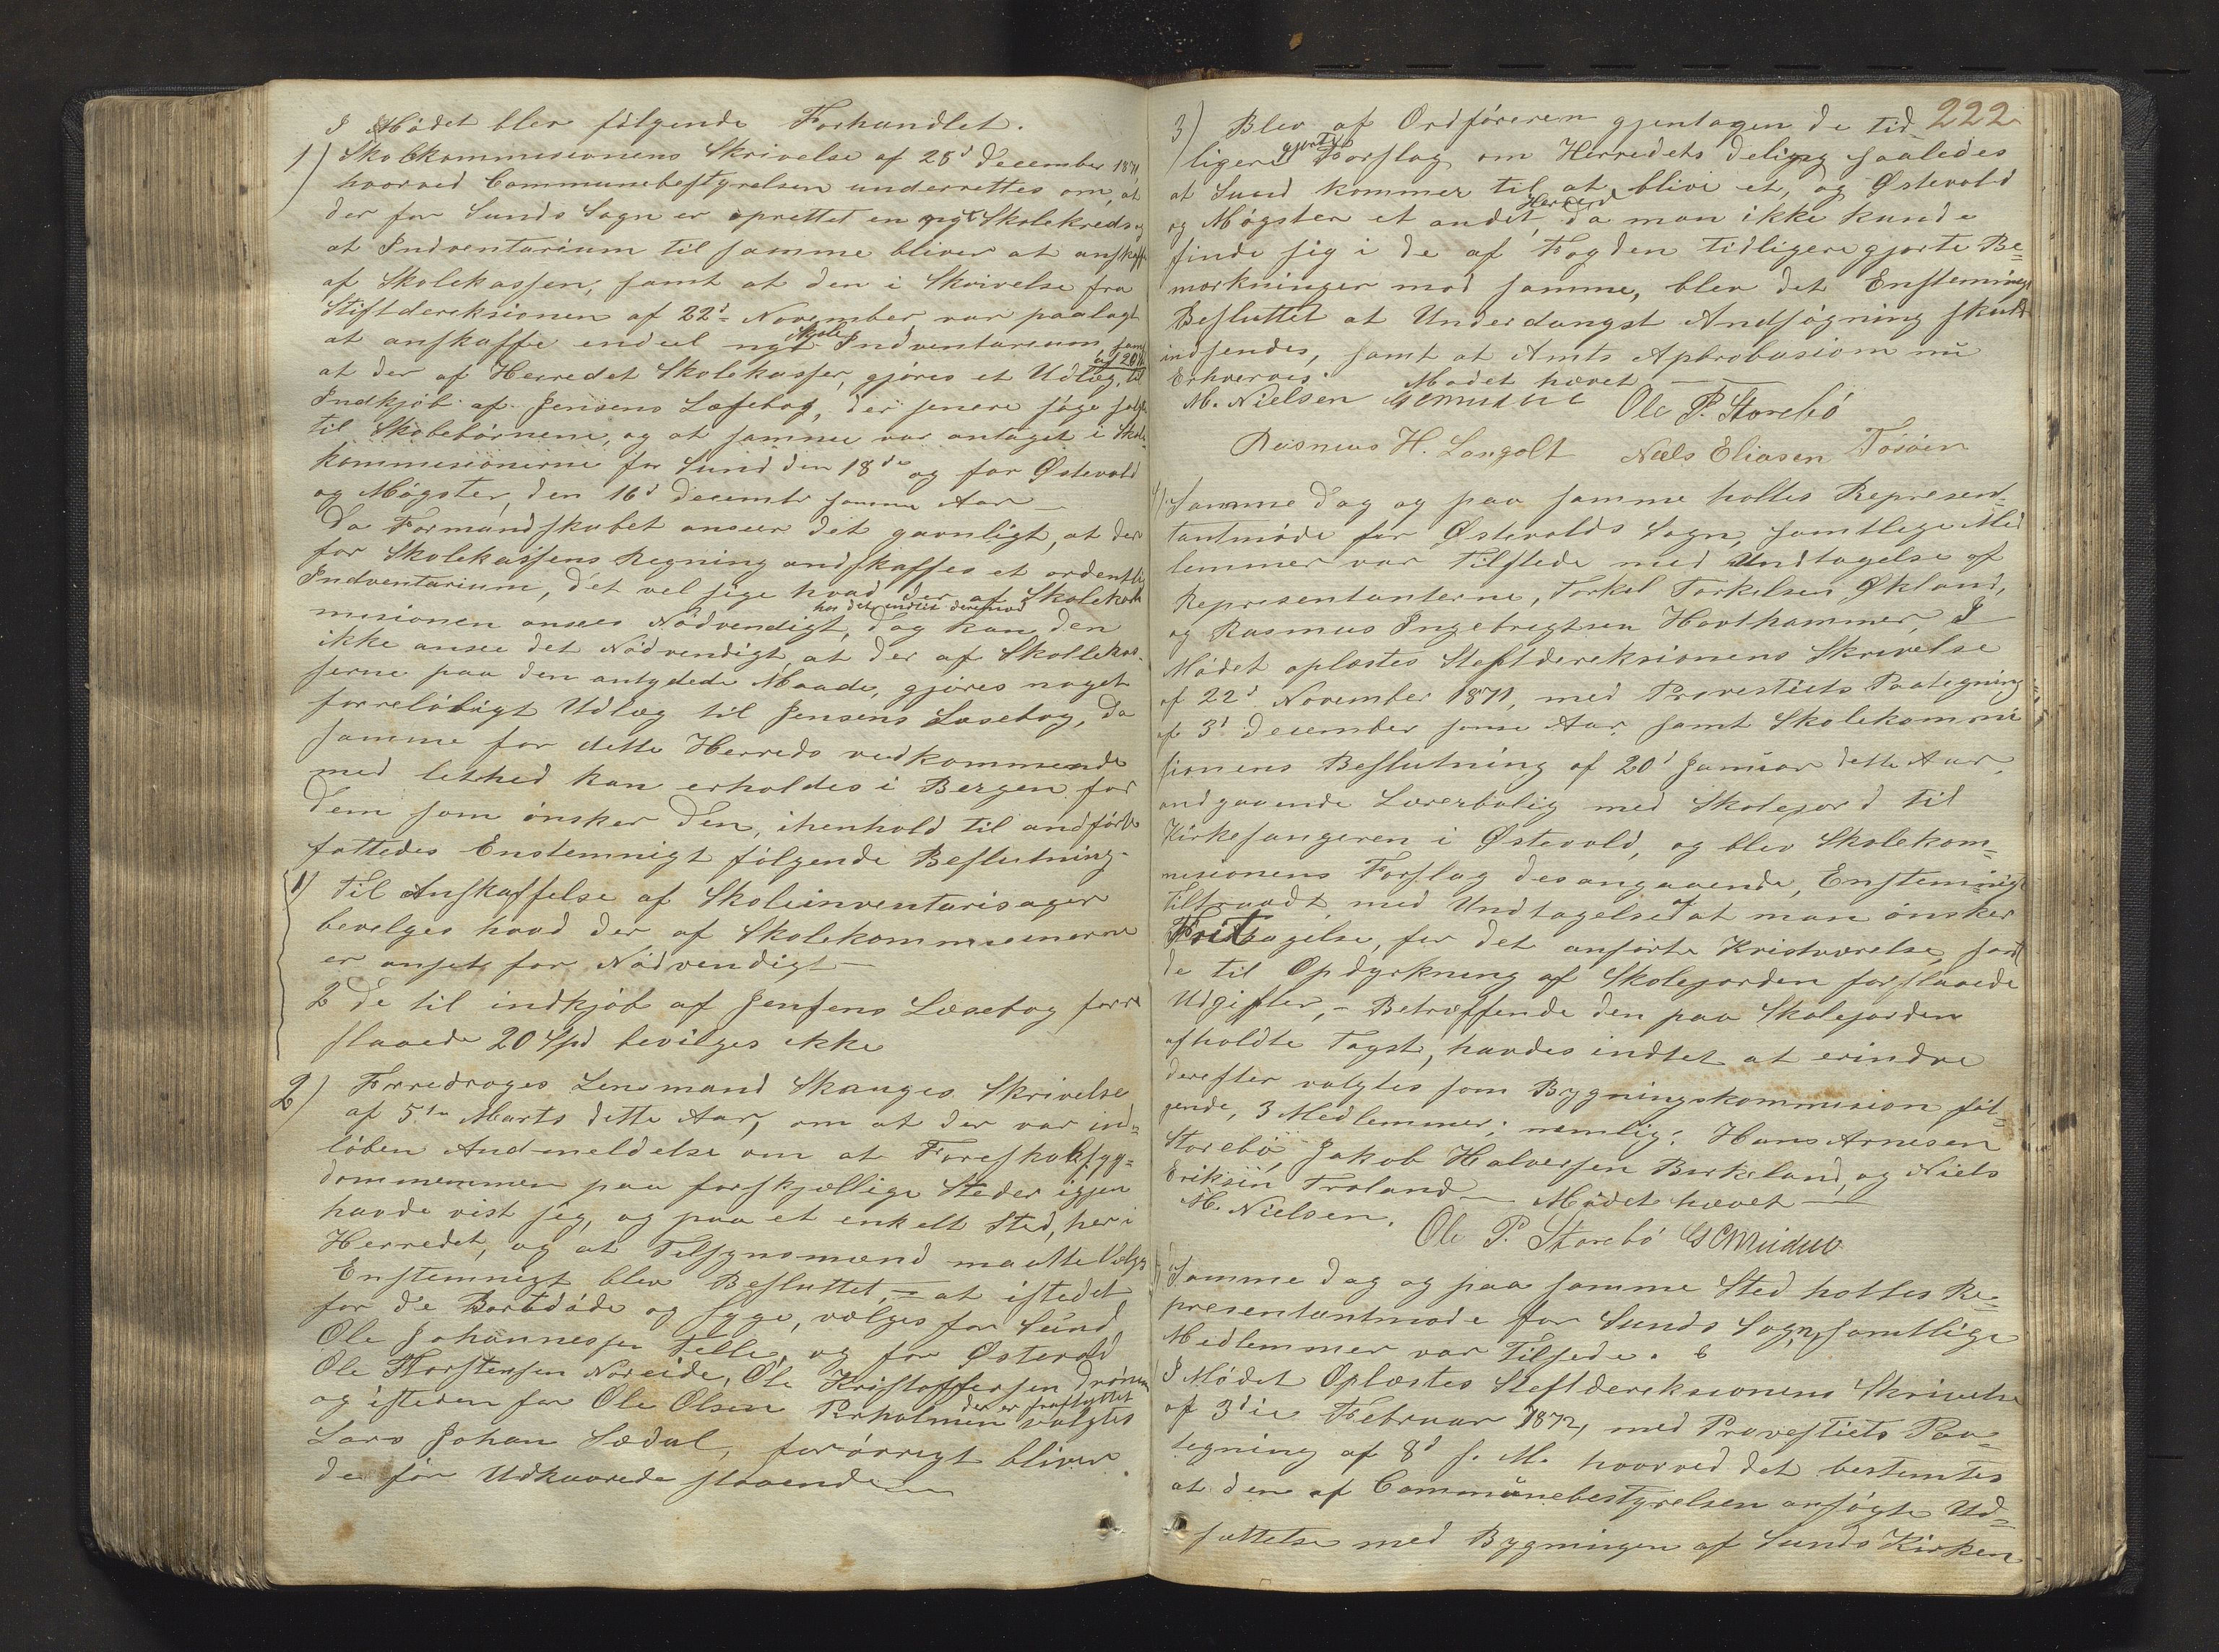 I Mødet blev følgende Forhandlet.
1) Skolekommisionens Skrivelse af 28d December 1871
hvorved Communebestyrelsen underrettes om, at
der for Sunds Sogn er oprettet en nye Skolekreds og
at Indventarium til samme bliver at anskaffe
af Skolekassen, samt at den i Skrivelse fra
Stiftdereksionen af 22d November var paalagt
at anskaffe endeel nyt Skole Indventarium, samt
at der af Herredet Skolekasser, gjøres et Udlæg, af 20 Spd til
Indkjøb af Jensens Læsebog, der senere søge solgt
til Skolebørnene, og at samme var antaget i Skole-
kommisionerne for Sund den 18de og for Østevold
og Møgster, den 16d Decembr samme Aar —
Da Formandskabet anseer det gavnligt, at der
for Skolekassens Regning andskaffes et ordentlig
Indventarium, det vel sige hvad der af Skolekom
misionen ansees Nødvendigt, dog kan den
ikke ansee det Nødvendigt, at der af Skolekas-
serne paa den antydede Maade, gjøres noget
forreløbigt Udlæg til Jensens Læsebog, da
samme for dette Herreds vedkommende
med lethed kan erholdes i Bergen for
dem som ønsker den, ihenhold til andførte
fattedes Enstemnigt følgende Beslutning.
1) Til Anskaffelse af Skoleinventarisager
bevelges hvad der af Skolekommisionerne
er anset for Nødvendigt —
2 De til indkjøb af Jensens Læsebog forre
slaaede 20 Spd bevilges ikke
2) Forredroges Lensmand Skauges Skrivelse
af 5te Marts dette Aar, om at der var ind=
løben Andmeldelse om at Foreskabsyg=
dommemmen paa forskjællige Steder igjen
havde vist sig, og paa et enkelt Sted, her i
Herredet, og at Tilsynsmænd maatte Velges
Enstemnigt blev Besluttet, — at istedet
for de Bortdøde og Syge, vælges for Sund
Ole Johannessen Telle, og for Østevold
Ole Thorstensen Noreide, Ole Kristoffersen Drønen
og isteden for Ole Olsen Perholmen der er fraflyttet valgtes
Lars Johan Sædal, forørrigt bliver
de før Udkaarede staaende —
222
3) Blev af Ordføreren gjentagen de tid
ligere gjorte Forslag om Herredets deling saaledes
at Sund kommer til at blive et, og Østevold
og Møgster et andet Herred, da man ikke kunde
finde sig i de af Fogden tidligere gjorte Be=
mærkninger mod samme, blev det Enstemnigt
Besluttet at Underdangst Andsøgning skulde
indsendes, samt at Amts Aprobasion nu
Erhverves. Mødet hævet —
M. Nielsen Ole P. Storebö
Rasmus H. Langolt Niels Eliasen Tosöen
4) Samme Dag og paa samme holtes Represen=
tantmøde for Østevolds Sogn, samtlege Med
lemmer var Tilstede med Undtagelse af
Representanterne, Torkel Torkelsen Økland,
og Rasmus Ingebregtsen Hovthammer, I
Mødet oplæstes Steftdereksionens Skrivelse
af 22d November 1871, med Provestiets Paategning
af 3d December samme Aar, samt Skolekommi
sionens Beslutning af 20d Januar dette Aar,
andgaaende Lærerbolig med Skolejord til
Kirkesangeren i Østevold, og blev Skolekom=
misionens Forslag desangaaende, Enstemnigt
Tiltraadt, med Undtagelse af at man ønsker
Fritagelse, for det anførte Kristværelse, samt
de til Opdyrkning af Skolejorden forslaaede
Udgifter, — Betræffende den paa Skolejorden
afholdte Tagst, havdes indtet at erindre
derefter valgtes som Bygningskommision føl=
gende, 3 Medlemmer; nemlig: Hans Arnesen
Storebø, Jakob Halversen Birkeland, og Niels
Eriksen Troland — Mødet hævet —
M. Nielsen. Ole P. Storebö
Samme Dag og paa samme Sted holtes Re=
presentantmøde for Sunds Sogn, samtlige
Medlemmer var Tilstede.
I Mødet Oplæstes Steftdereksionens Skrivelse
af 3die Februar 1872, med Provestiets Paa=
tegning af 8d s. M. hvorved det bestemtes
at den af Communebestyrelsen ansøgte Ud=
sættelse med Bygningen af Sunds Kirken